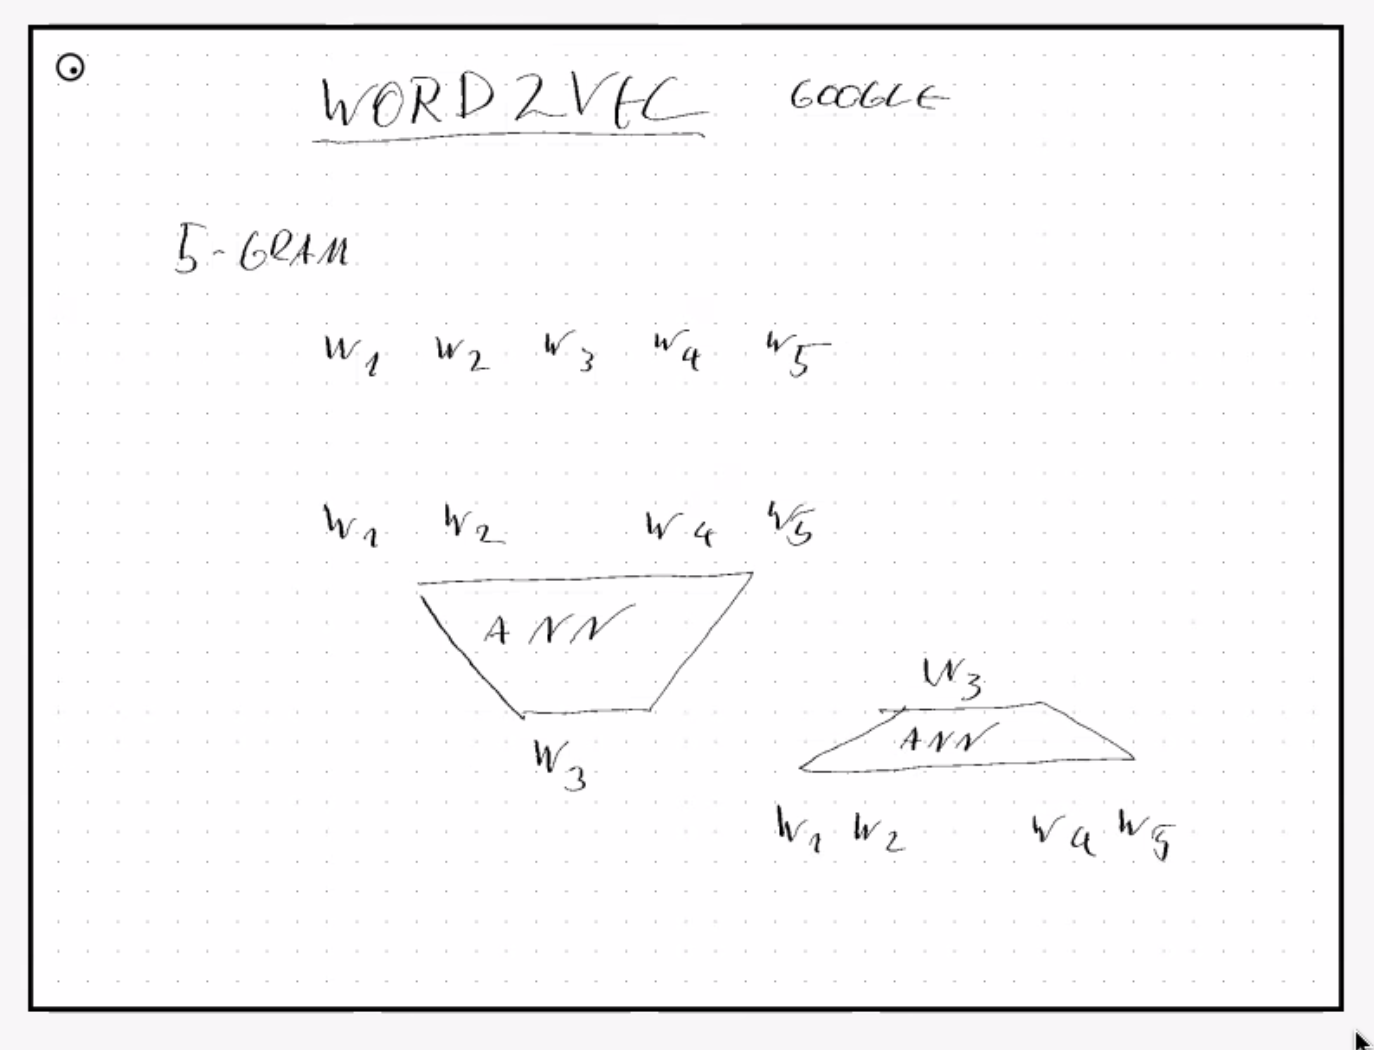 WORD2VEC GOOGLE
5-GRAM
W1 W2 W3 W4 W5
W1 W2 W4 W5
ANN
W3
W3
ANN
W1 W2 W4 W5